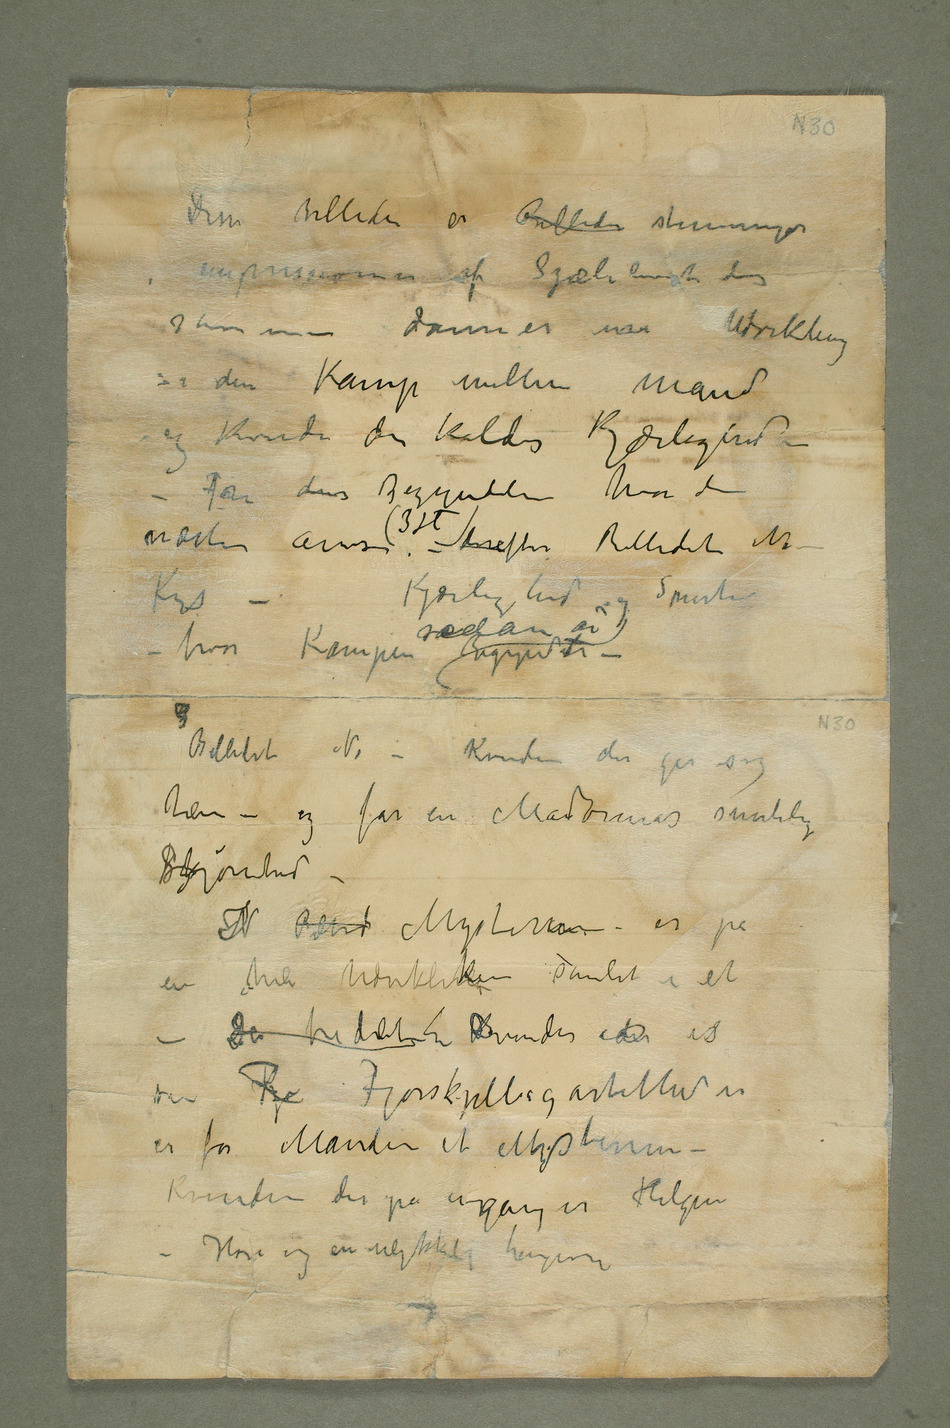 N30
Disse billeder er Billeder stemninger
impressioner af Sjælelivet der
sammen danner en Udvikling
i den Kamp mellem mand
og kvinde der kaldes Kjærlighed
– Fra dens Begyndelse hvor den
næsten avvises (3st) – derefter Billedet No –
Kys – Kjærlighed og Smerte
– hvor Kampen sådan er begyndt –
N30
Billedet No – Kvinden der gir sig
hen – og får en Madonnas smertelig
Skjønhed –
Mysterium – er på
en hel Udvikling samlet i et
– Kvinden i sin
Forskjelligartethed er
er for Manden et Mysterium –
Kvinden der på engang er Helgen
– Hore og en ulykkelig hengiven